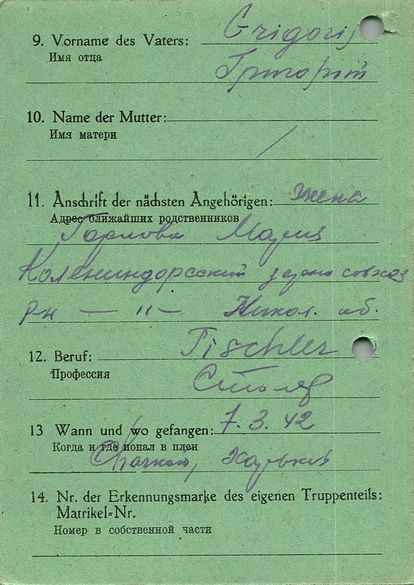 9. Vorname des Vaters: Grigorij
Имя отца Григорий
10. Name der Mutter: /
Имя матери
11. Anschrift der nächsten Angehörigen: жена
Адрес ближайших родственников
Мария
зерно совхоз
рн — 11 — Никол. об.
12. Beruf: Tischler
Профессия Столяр
13 Wann und wo gefangen: 7. 3. 42
Когда и где попал в плен
Харьков
14. Nr. der Erkennungsmarke des eigenen Truppenteils:
Matrikel-Nr.
Номер в собственной части